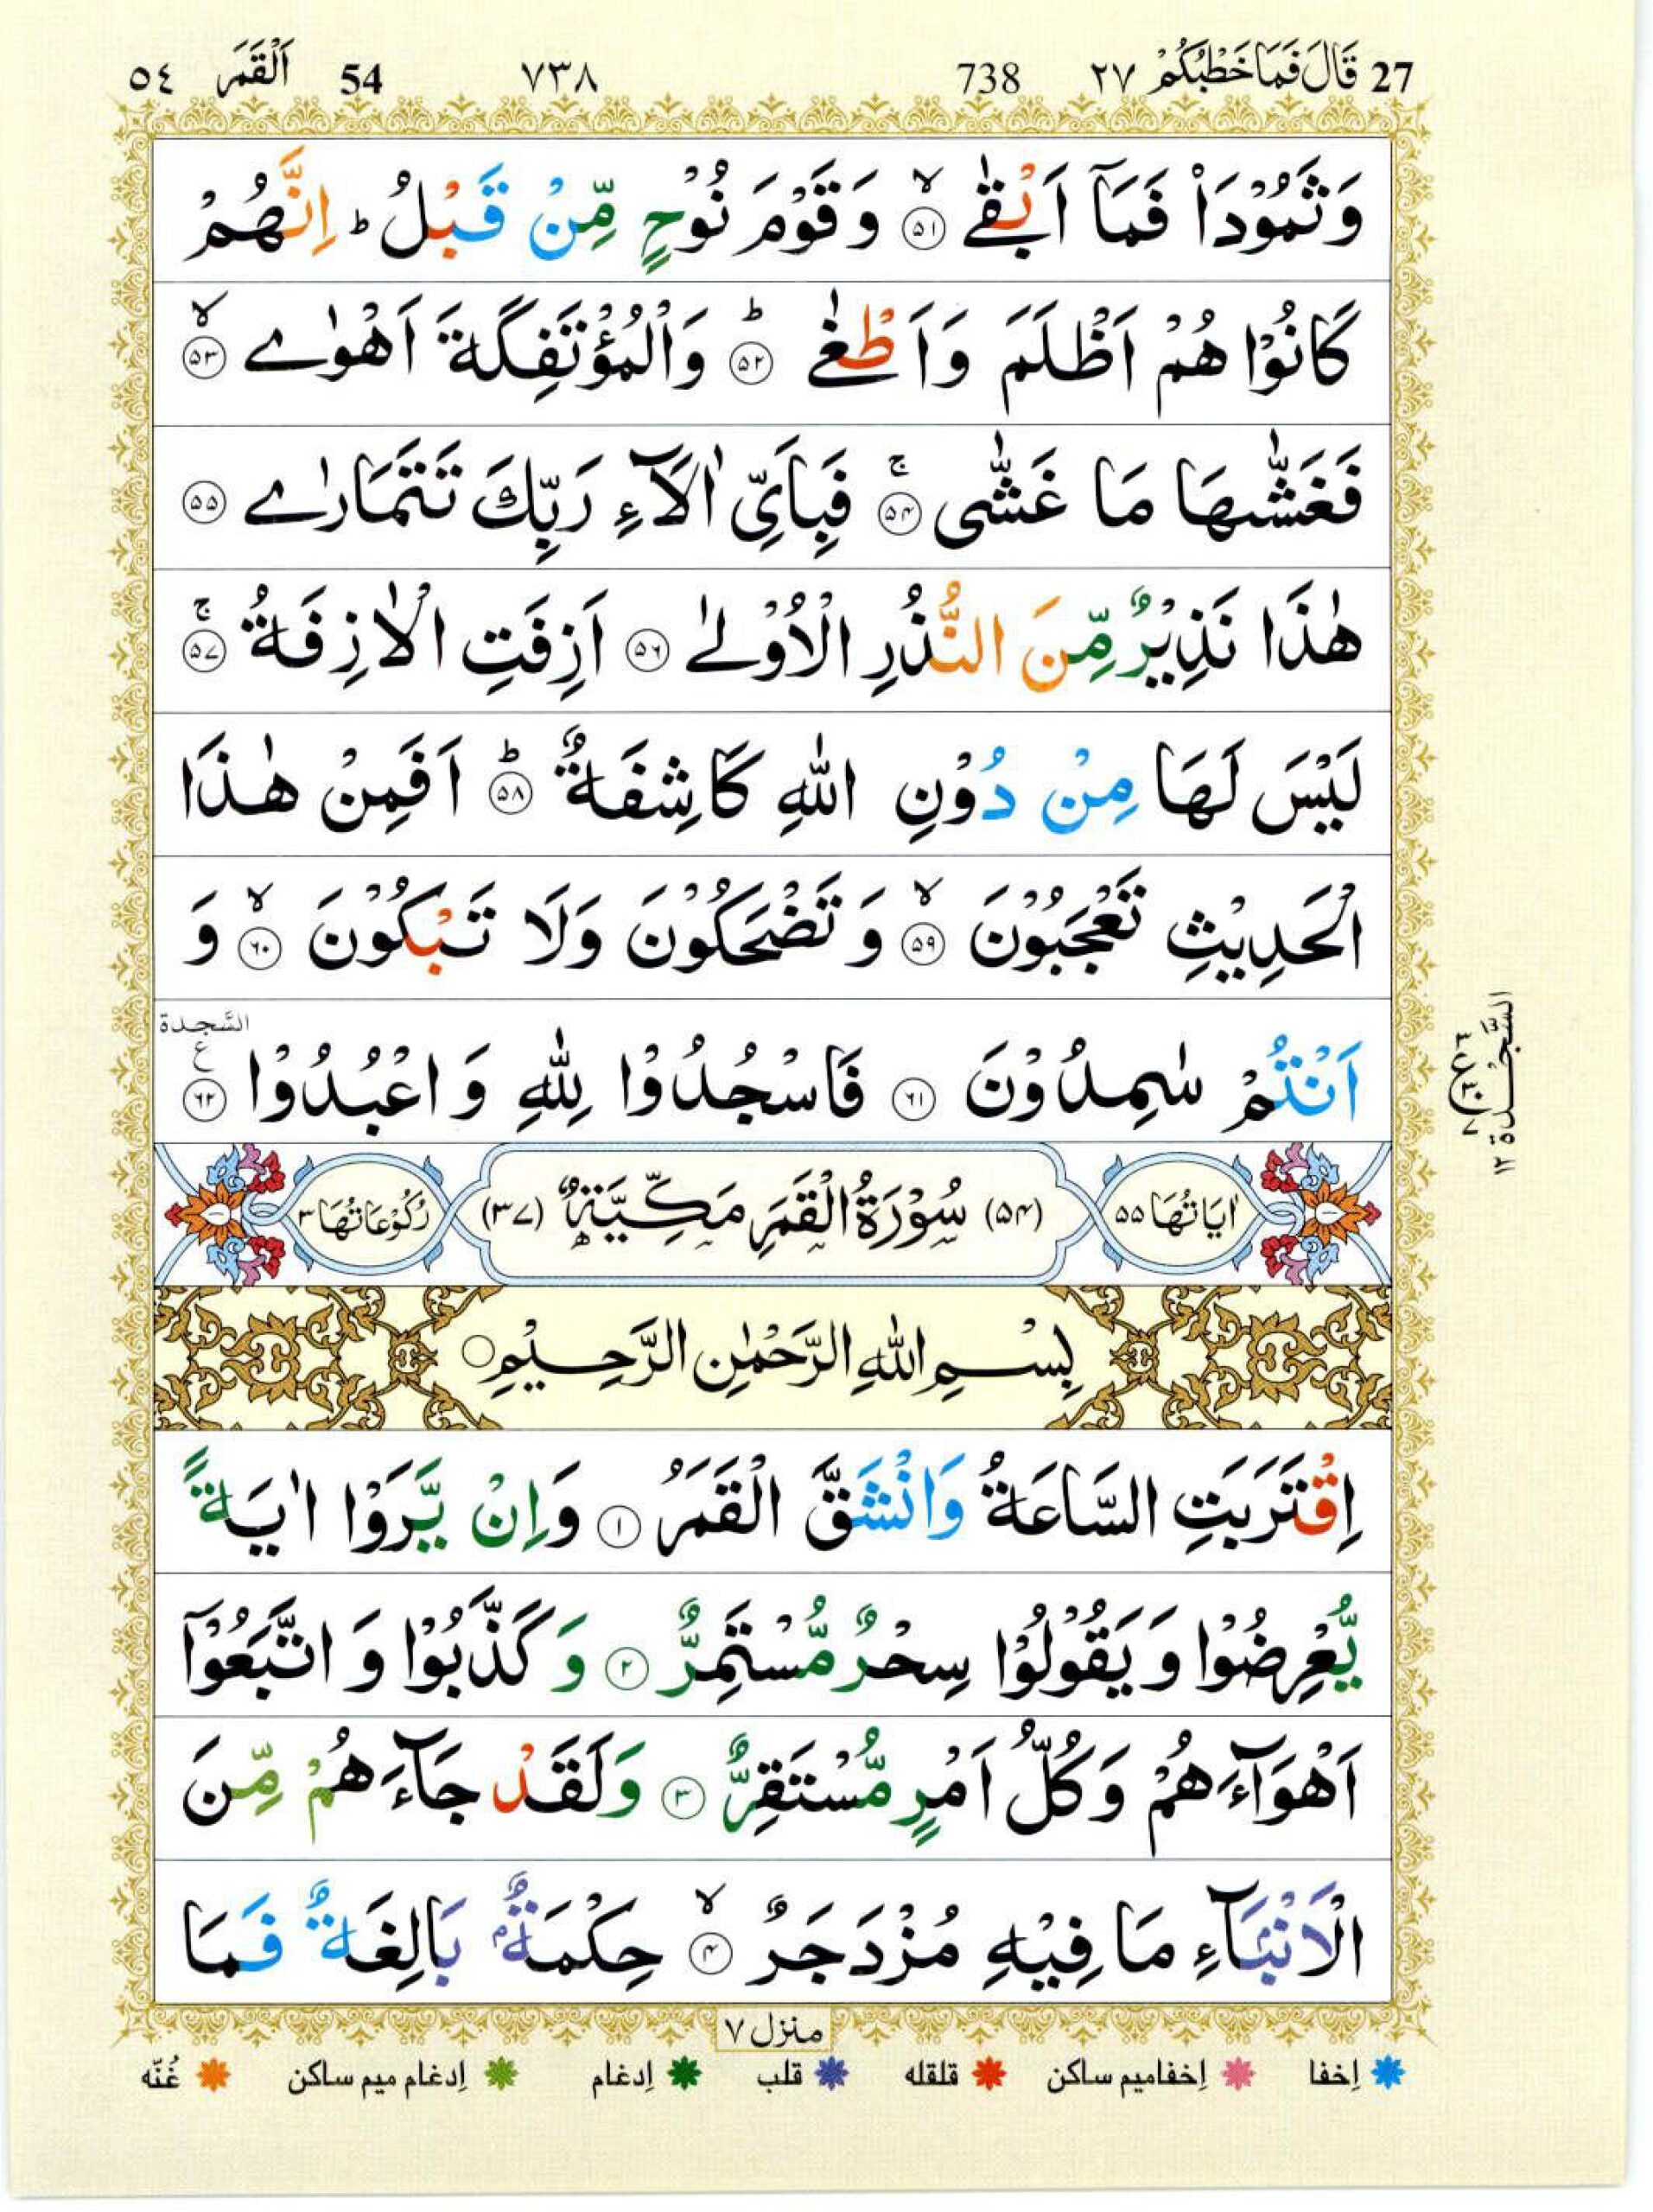 27 قَالَ فَمَا خَطْبُكُمْ ٢٧ 738 ٧٣٨ 54 اَلْقَمَر ٥٤
وَثَمُوْدَا۟ فَمَآ اَبْقٰى ۙ﴿۵۱﴾ وَقَوْمَ نُوْحٍ مِّنْ قَبْلُ ؕ اِنَّهُمْ
كَانُوْا هُمْ اَظْلَمَ وَاَطْغٰى ؕ﴿۵۲﴾ وَالْمُؤْتَفِكَةَ اَهْوٰى ۙ﴿۵۳﴾
فَغَشّٰىهَا مَا غَشّٰى ۚ﴿۵۴﴾ فَبِاَىِّ اٰلَآءِ رَبِّكَ تَتَمَارٰى ﴿۵۵﴾
هٰذَا نَذِيْرٌ مِّنَ النُّذُرِ الْاُوْلٰى ﴿۵۶﴾ اَزِفَتِ الْاٰزِفَةُ ۚ﴿۵۷﴾
لَيْسَ لَهَا مِنْ دُوْنِ اللّٰهِ كَاشِفَةٌ ؕ﴿۵۸﴾ اَفَمِنْ هٰذَا
الْحَدِيْثِ تَعْجَبُوْنَ ۙ﴿۵۹﴾ وَ تَضْحَكُوْنَ وَلَا تَبْكُوْنَ ۙ﴿۶۰﴾ وَ
اَنْتُمْ سٰمِدُوْنَ ﴿۶۱﴾ فَاسْجُدُوْا لِلّٰهِ وَ اعْبُدُوْا ﴿۶۲﴾ السَّجدة ع
السَّجْدة ١٢
اٰيَاتُهَا ۵۵ (۵۴) سُوْرَةُ الْقَمَرِ مَكِّيَّةٌ (۳۷) رُكُوْعَاتُهَا ۳
بِسْمِ اللّٰهِ الرَّحْمٰنِ الرَّحِيْمِ
اِقْتَرَبَتِ السَّاعَةُ وَانْشَقَّ الْقَمَرُ ﴿۱﴾ وَاِنْ يَّرَوْا اٰيَةً
يُّعْرِضُوْا وَ يَقُوْلُوْا سِحْرٌ مُّسْتَمِرٌّ ﴿۲﴾ وَ كَذَّبُوْا وَ اتَّبَعُوْٓا
اَهْوَآءَهُمْ وَكُلُّ اَمْرٍ مُّسْتَقِرٌّ ﴿۳﴾ وَلَقَدْ جَآءَهُمْ مِّنَ
الْاَنْۢبَآءِ مَا فِيْهِ مُزْدَجَرٌ ۙ﴿۴﴾ حِكْمَةٌۢ بَالِغَةٌ فَمَا
منزل ٧
إخفا إخفاميم ساكن قلقله قلب إدغام إدغام ميم ساكن غُنّه